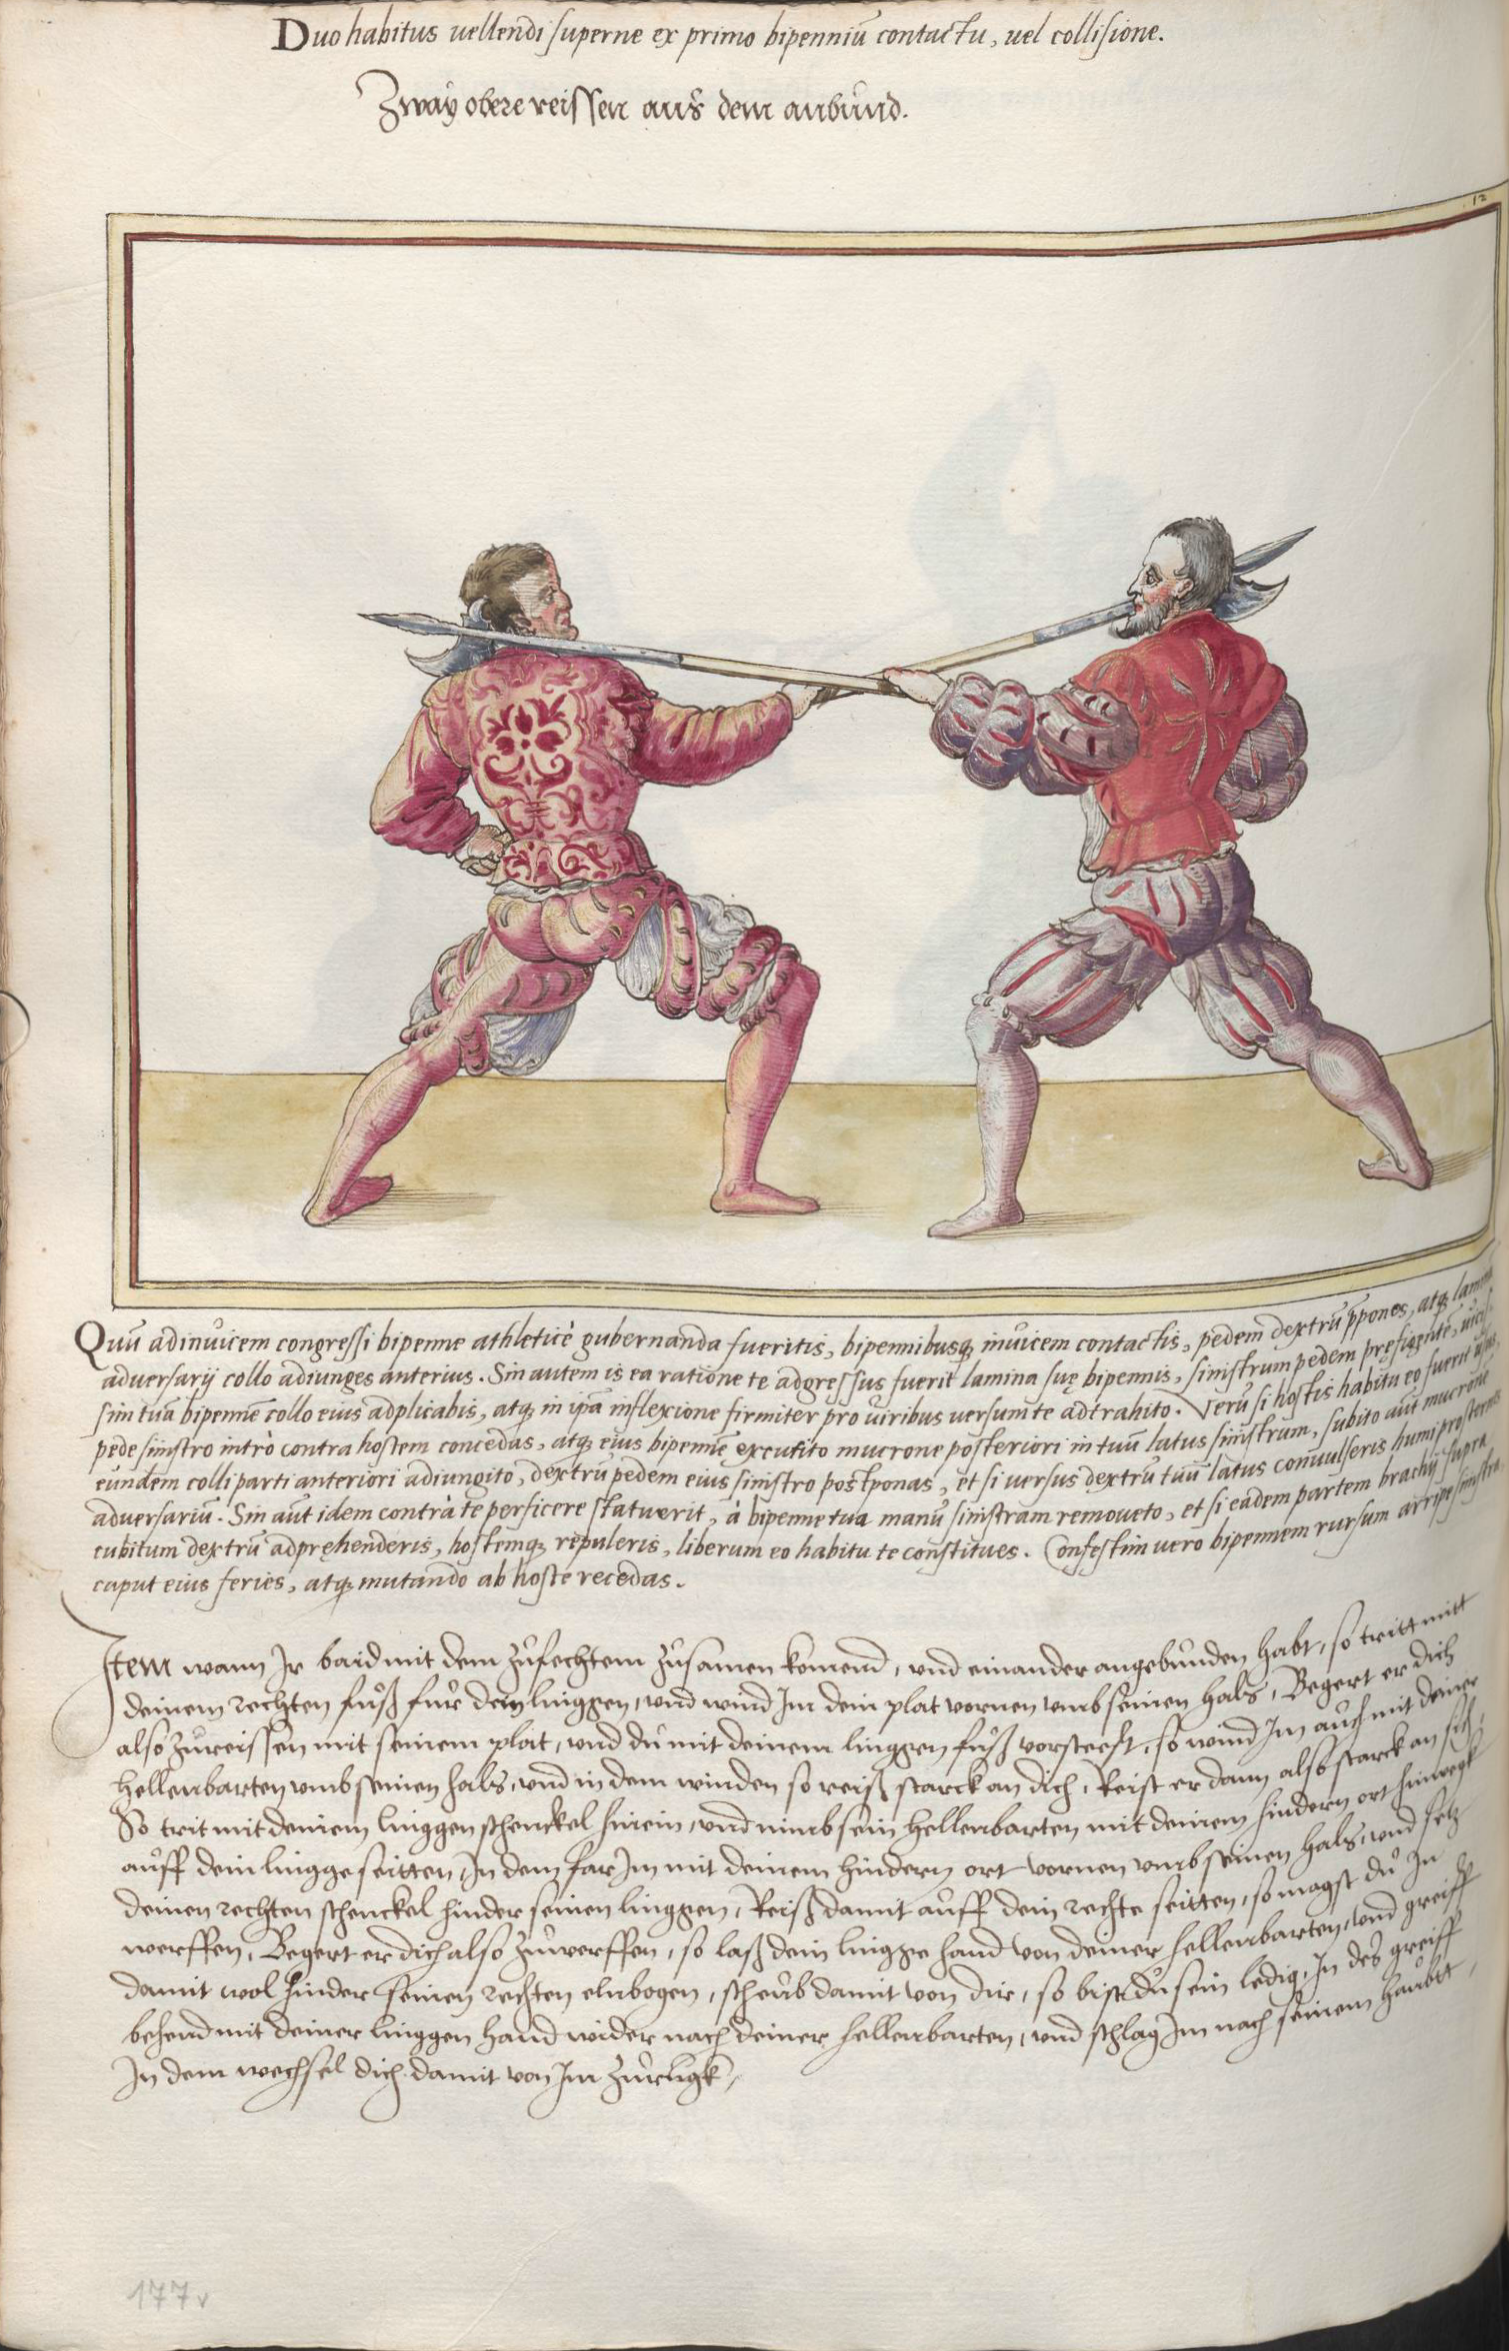 Duo habitus vellendi superne ex primo bipenniū contactu, vel collisione.
Zway obere reissen aus dem anbund.
12
Quū adinuicem congressi bipenne athleticè gubernanda fueritis, bipennibusq; inuicem contactis, pedem dextrū p̄pones, atq; lamina
adversarij collo adiunges anterius. Sin autem is ea ratione te adgressus fuerit lamina suę bipennis, sinistrum pedem prefigente, uicis
sim tuā bipennē collo eius adplicabis, atq; in ipā inflexione firmiter pro uiribus versum te adtrahito. Verū si hostis habitu eo fuerit usus,
pede sinistro intrò contra hostem concedas, atq; eius bipennē excutito mucrone posteriori in tuū latus sinistrum, subito aūt mucrone
eundem colli parti anteriori adiungito, dextrū pedem eius sinistro postponas, et si versus dextrū tuū latus convulseris humi prosternes
adversariū. Sin aūt idem contrà te perficere statuerit, à bipenne tua manū sinistram remoueto, et si eadem partem brachij supra
cubitum dextrū adpręhenderis, hostemq; repuleris, liberum eo habitu te constitues. Confestim vero bipennem rursum arripe sinistra
caput eius feries, atq; mutando ab hoste recedas.
Item wann Ir baid mit dem zufechten zusamen komend, und einander angebunden habt, so tritt mitt
deinem rechten fuß fur dein linggen, und wind Im dein plat vornen umb seinen hals, Begert er dich
also zureissen mit seinem plat, und du mit deinem linggen fuß vorsteest, so wind Im auch mit deiner
hellenbarten umb seinen hals, und in dem winden so reiß starck an dich, Reist er dann also starck an sich,
So trit mit deinem linggen schenckel hinein, und nimb sein hellenbarten mit deinem hindern ort hinwegk
auff dein lingge seitten, In dem far Im mit deinem hindern ort vornen umb seinen hals, und setz
deinen rechten schenckel hinder seinen linggen, Reiß damit auff dein rechte seitten, so magst du In
werffen, Begert er dich also zuwerffen, so laß dein lingge hand von deiner hellenbarten, und greiff
damit wol hinder seinen rechten elnbogen, scheub damit von dir, so bist du sein ledig, In des greiff
behend mit deiner linggen hand wider nach deiner hellenbarten, und schlag Im nach seinem haubtt,
In dem wechsel dich damit von Im zurugk,
177v